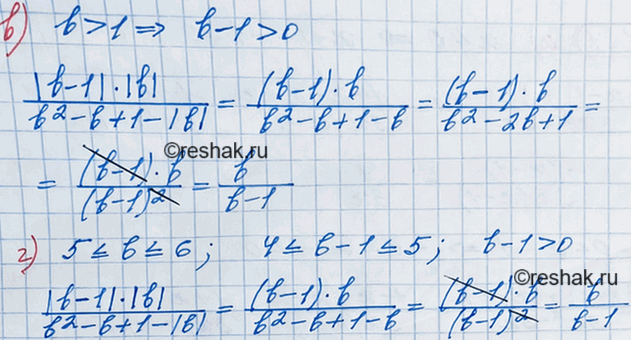 в) b > 1 ⇒ b - 1 > 0
|b-1|·|b| / b² - b + 1 - |b| = (b-1)·b / b² - b + 1 - b = (b-1)·b / b² - 2b + 1 =
©reshak.ru
= (b-1)·b / (b-1)² = b / b-1
г) 5 ≤ b ≤ 6; 4 ≤ b - 1 ≤ 5; b - 1 > 0
©reshak.ru
|b-1|·|b| / b² - b + 1 - |b| = (b-1)·b / b² - b + 1 - b = (b-1)·b / (b-1)² = b / b-1